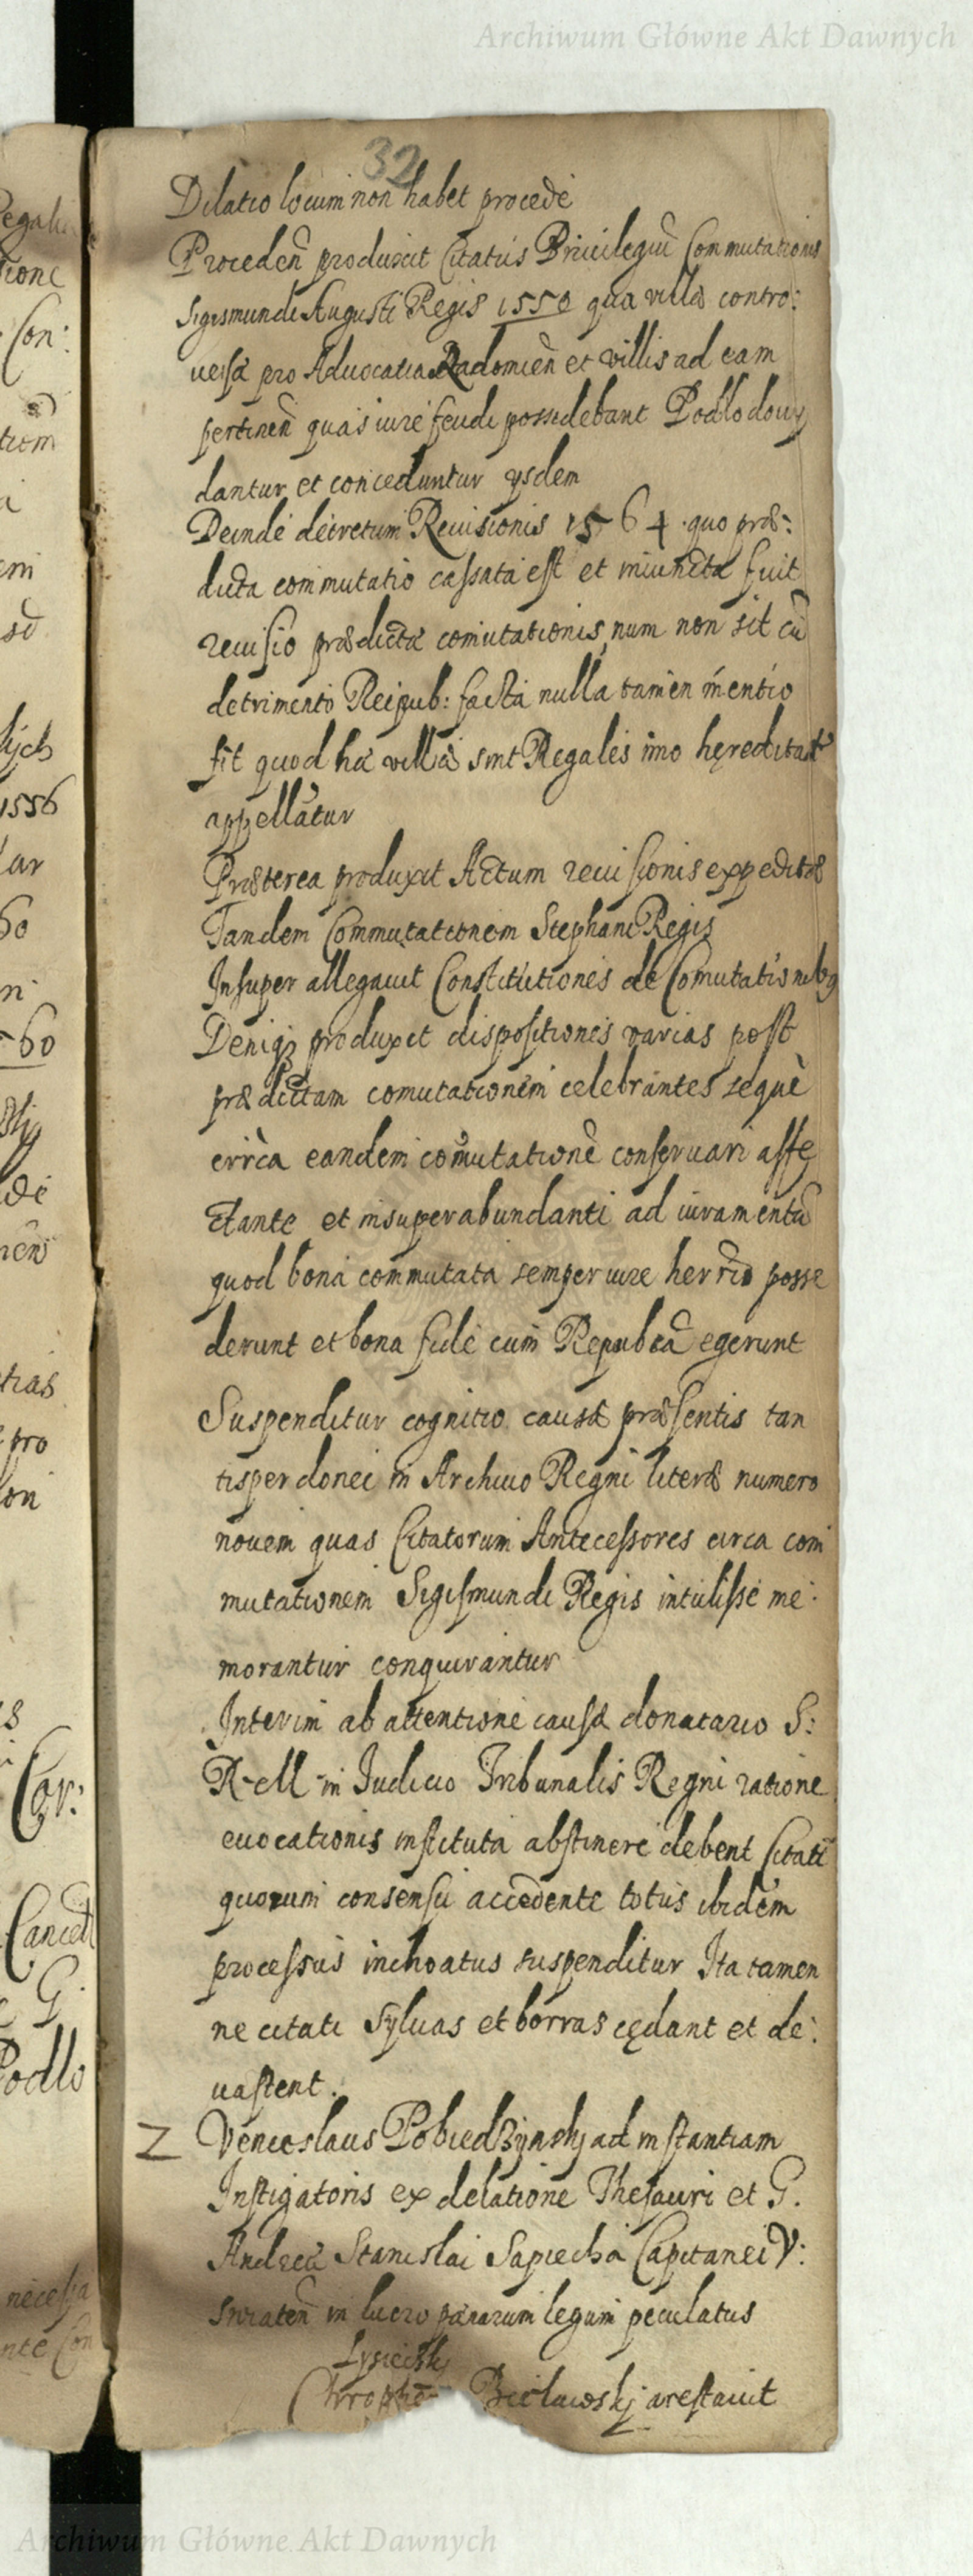 Archiwum Główne Akt Dawnych
32
Dilatio locum non habet procedē
Proceden̄ produxit Citatus Privilegiū Commutationis
Sigismundi Augusti Regis 1550 qua villæ contro:
uersæ pro Aduocatia Radomien̄ et villis ad eam
pertinen̄ quas iure feudi possidebant Podlodowy
dantur et conceduntur ysdem
Deinde decretum Reuisionis 1564 quo præ:
dicta commutatio cassata est et iniuncta fuit
reuisio prædictæ comutationis, num non sit cū
detrimento Reipub: facta nulla tamen mentio
fit quod hæ villæ sint Regales imo hęreditariæ
appellātur
Præterea produxit Actum reuisionis expeditæ
Tandem Commutationem Stephani Regis
Insuper allegauit Constitutiones de Comutationibq
Deniqȝ produxit dispositiones varias post
prædictam comutationem celebrantes seque
circa eandem comutationē conseruari affe
ctante et insuperabundanti ad iuramentū
quod bona commutata semper iure herrio posse
derunt et bona fide cum Repubca egerunt
Suspenditur cognitio causæ præsentis tan
tisper donec in Archiuo Regni literæ numero
nouem quas Citatorum Antecessores circa com
mutationem Sigismundi Regis intulisse me:
morantur conquirantur
Interim ab attentione causæ donatario S:
R M in Iudicio Tribunalis Regni ratione
euocationis instituta abstinere debent Citati
quorum consensu accedente totus ibidem
processus inchoatus suspenditur Ita tamen
ne citati Syluas et borras cędant et de:
uastent.
Z Venceslaus Pobiedzynskj ad instantiam
Instigatoris ex delatione Thesauri et G.
Andreæ Stanislai Sapiecha Capitanei V:
Swiaten̄ in lucro pænarum legum peculatus
Lysieckj
Bielawskj arestauit
Regali
tione
Con:
tiom
1556
ar
60
60
tias
pro
Car:
Cancell
G
Podlo
necessa
nte Con
Archiwum Główne Akt Dawnych